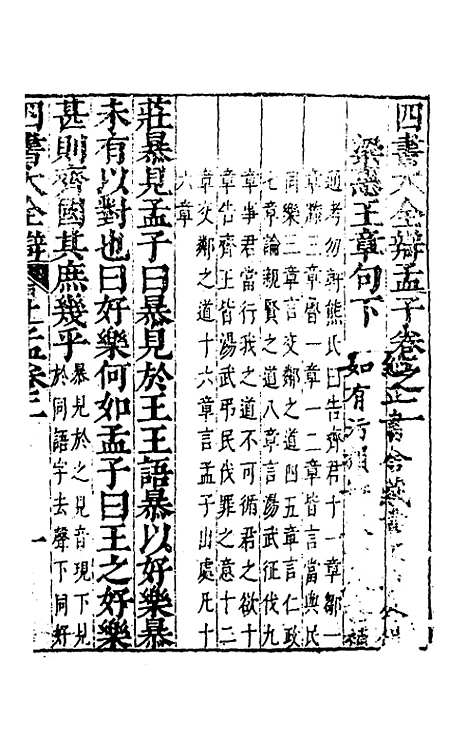 四書大全辯孟子卷之二
梁惠王章句下
通考勿軒熊氏曰告齊君十一章鄒一
章滕三章魯一章一二章皆言當與民
同樂三章言交鄰之道四五章言仁政
七章論親賢之道八章言湯武征伐九
章事君當行我之道不可循君之欲十
章告齊王皆湯武弔民伐罪之意十二
章交鄰之道十六章言孟子出處凡十
六章
莊暴見孟子曰暴見於王王語暴以好樂暴
未有以對也曰好樂何如孟子曰王之好樂
甚則齊國其庶幾乎暴見於之見音現下見
於同語字去聲下同好
四書大全辯
上孟卷二
一
如有污損